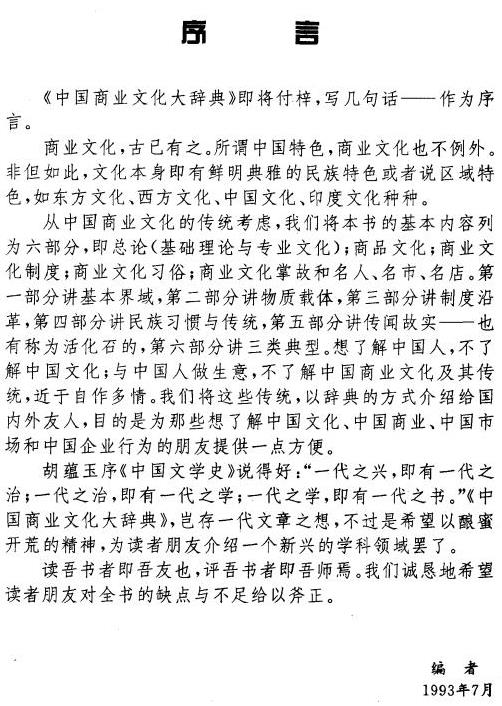 序 言
《中国商业文化大辞典》即将付梓，写几句话——作为序
言。
商业文化，古已有之。所谓中国特色，商业文化也不例外。
非但如此，文化本身即有鲜明典雅的民族特色或者说区域特
色，如东方文化、西方文化、中国文化、印度文化种种。
从中国商业文化的传统考虑，我们将本书的基本内容列
为六部分，即总论（基础理论与专业文化）；商品文化；商业文
化制度；商业文化习俗；商业文化掌故和名人、名市、名店。第
一部分讲基本界域，第二部分讲物质载体，第三部分讲制度沿
革，第四部分讲民族习惯与传统，第五部分讲传闻故实——也
有称为活化石的，第六部分讲三类典型。想了解中国人，不了
解中国文化；与中国人做生意，不了解中国商业文化及其传
统，近于自作多情。我们将这些传统，以辞典的方式介绍给国
内外友人，目的是为那些想了解中国文化、中国商业、中国市
场和中国企业行为的朋友提供一点方便。
胡蕴玉序《中国文学史》说得好：“一代之兴，即有一代之
治；一代之治，即有一代之学；一代之学，即有一代之书。”《中
国商业文化大辞典》，岂存一代文章之想，不过是希望以酿蜜
开荒的精神，为读者朋友介绍一个新兴的学科领域罢了。
读吾书者即吾友也，评吾书者即吾师焉。我们诚恳地希望
读者朋友对全书的缺点与不足给以斧正。
编 者
1993年7月